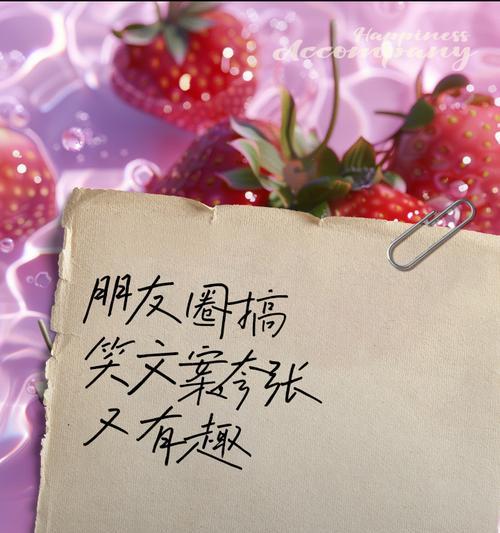 Happiness
Accompany
朋友圈搞
笑文案夸张
又有趣